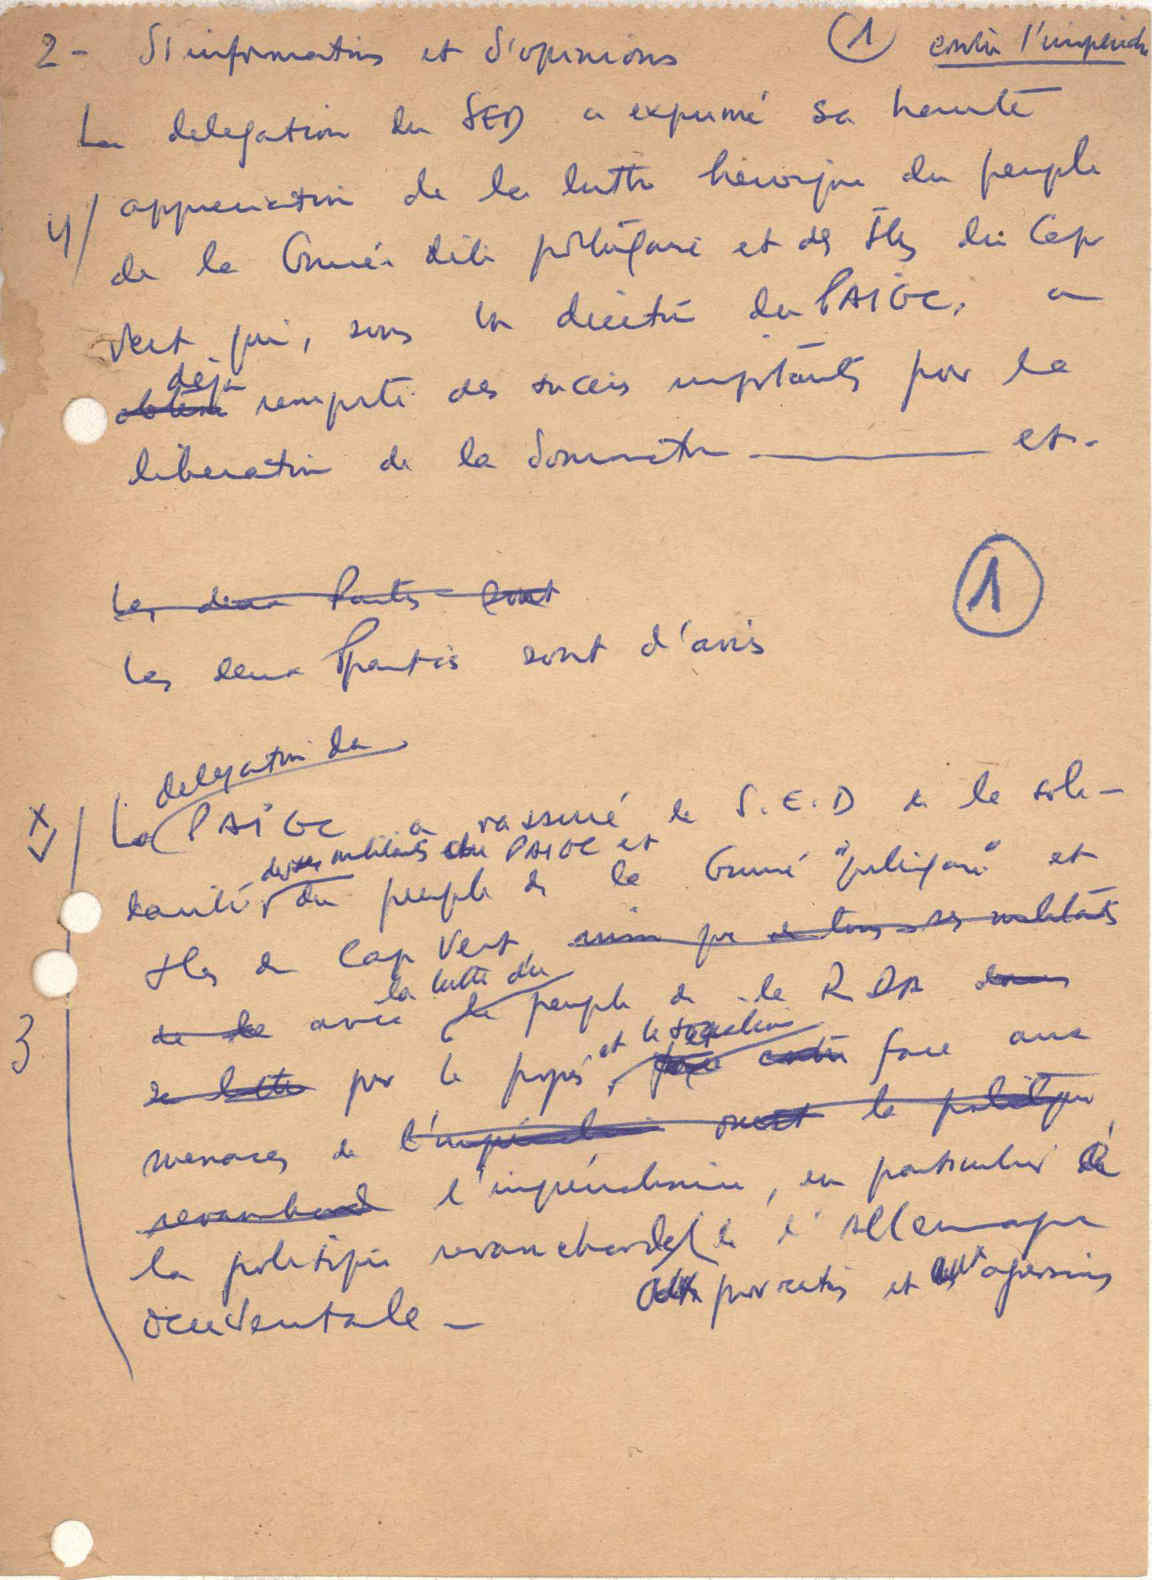 2- d'informations et d'opinions ① contre l'impéria
La delegation du SED a exprimé sa haute
4/ appreciation de la lutte héroique du peuple
de la Guinée dite portugaise et des Iles du Cap
Vert qui, sous la direction du PAIGC, a
déjà
remporté des succès importants pour la
libération de la domination ——— et.
①
Les deux Partis sont
Les deux Partis sont d'avis
delegation du
x La PAIGC a rassuré le S.E.D de la soli-
des militants du PAIGC et
darité, du peuple de la Guinée "portugaise" et
Iles du Cap Vert de tous ses militants
la lutte du
3 de la avec le peuple de la RDA dans
et le socialisme
sa lutte pour le progrès, contre face aux
menaces de l'impérialisme la politique
revanchard l'impérialisme, en particulier de
la politique revancharde de l'Allemagne
occidentale - aux et aux agressions